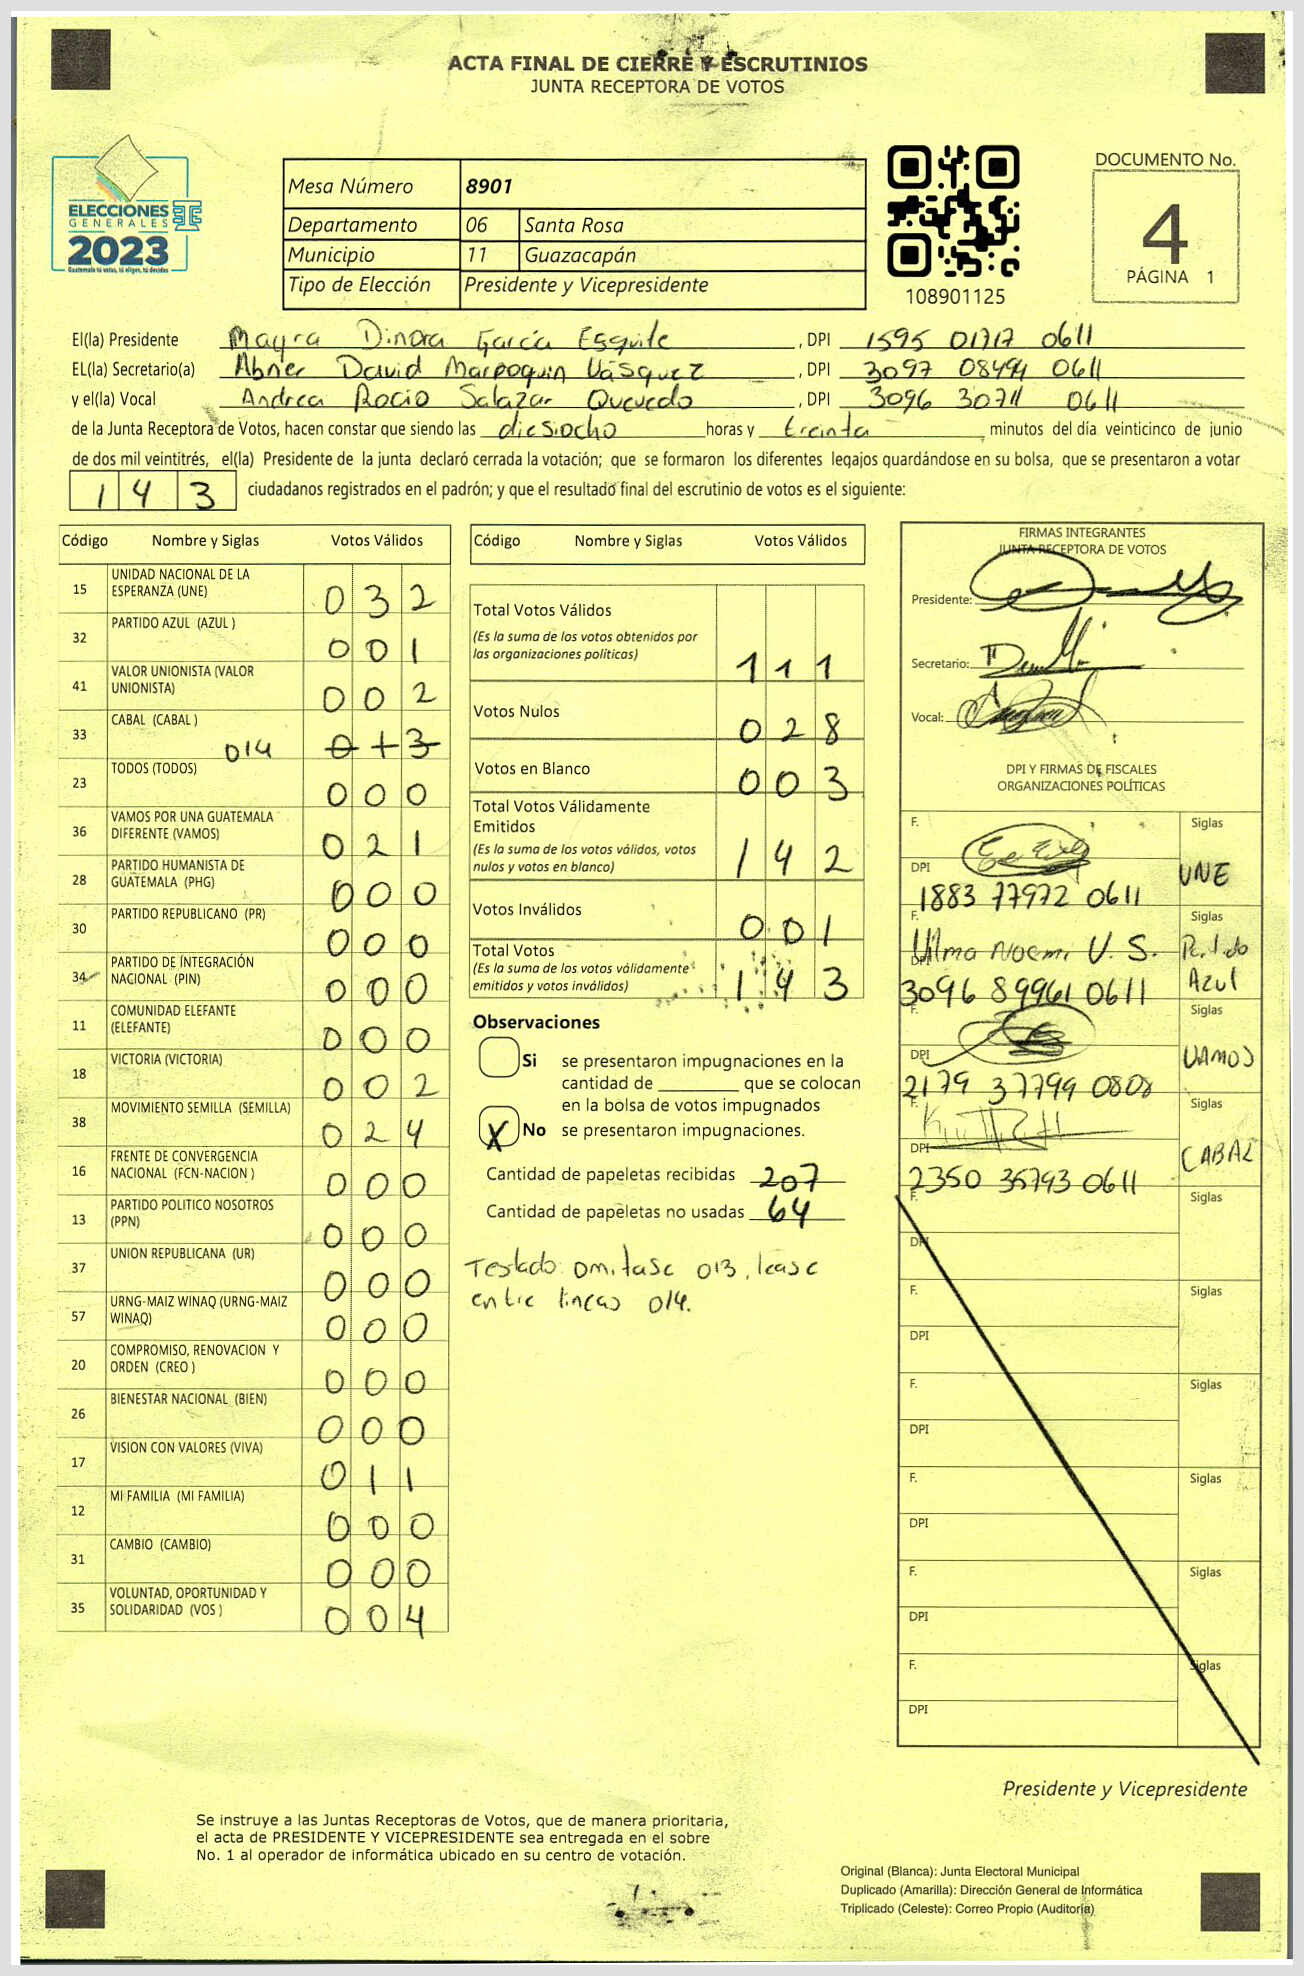 ACTA FINAL DE CIERRE Y ESCRUTINIOS
JUNTA RECEPTORA DE VOTOS
ELECCIONES
GENERALES
2023
Guatemala tú votas, tú eliges, tú decides
Mesa Número 8901
Departamento 06 Santa Rosa
Municipio 11 Guazacapán
Tipo de Elección Presidente y Vicepresidente
108901125
DOCUMENTO No.
4
PÁGINA 1
El(la) Presidente Mayra Dinora García Esquite, DPI 1595 01717 0611
EL(la) Secretario(a) Abner David Marroquin Vásquez, DPI 3097 08494 0611
y el(la) Vocal Andrea Rocio Salazar Quevedo, DPI 3096 30711 0611
de la Junta Receptora de Votos, hacen constar que siendo las diesiocho horas y treinta minutos del día veinticinco de junio
de dos mil veintitrés, el(la) Presidente de la junta declaró cerrada la votación; que se formaron los diferentes legajos guardándose en su bolsa, que se presentaron a votar
143 ciudadanos registrados en el padrón; y que el resultado final del escrutinio de votos es el siguiente:
Código Nombre y Siglas Votos Válidos
15 UNIDAD NACIONAL DE LA
ESPERANZA (UNE) 032
32 PARTIDO AZUL (AZUL ) 001
41 VALOR UNIONISTA (VALOR
UNIONISTA) 002
33 CABAL (CABAL ) 014 013
23 TODOS (TODOS) 000
36 VAMOS POR UNA GUATEMALA
DIFERENTE (VAMOS) 021
28 PARTIDO HUMANISTA DE
GUATEMALA (PHG) 000
30 PARTIDO REPUBLICANO (PR) 000
34 PARTIDO DE INTEGRACIÓN
NACIONAL (PIN) 000
11 COMUNIDAD ELEFANTE
(ELEFANTE) 000
18 VICTORIA (VICTORIA) 002
38 MOVIMIENTO SEMILLA (SEMILLA) 024
16 FRENTE DE CONVERGENCIA
NACIONAL (FCN-NACION ) 000
13 PARTIDO POLITICO NOSOTROS
(PPN) 000
37 UNION REPUBLICANA (UR) 000
57 URNG-MAIZ WINAQ (URNG-MAIZ
WINAQ) 000
20 COMPROMISO, RENOVACION Y
ORDEN (CREO ) 000
26 BIENESTAR NACIONAL (BIEN) 000
17 VISION CON VALORES (VIVA) 011
12 MI FAMILIA (MI FAMILIA) 000
31 CAMBIO (CAMBIO) 000
35 VOLUNTAD, OPORTUNIDAD Y
SOLIDARIDAD (VOS ) 004
Código Nombre y Siglas Votos Válidos
Total Votos Válidos
(Es la suma de los votos obtenidos por
las organizaciones políticas) 111
Votos Nulos 028
Votos en Blanco 003
Total Votos Válidamente
Emitidos
(Es la suma de los votos válidos, votos
nulos y votos en blanco) 142
Votos Inválidos 001
Total Votos
(Es la suma de los votos válidamente
emitidos y votos inválidos) 143
Observaciones
Si se presentaron impugnaciones en la
cantidad de ________ que se colocan
en la bolsa de votos impugnados
X No se presentaron impugnaciones.
Cantidad de papeletas recibidas 207
Cantidad de papeletas no usadas 64
Testado: Omitase 013, lease
entre lineas 014.
FIRMAS INTEGRANTES
JUNTA RECEPTORA DE VOTOS
Presidente:
Secretario:
Vocal:
DPI Y FIRMAS DE FISCALES
ORGANIZACIONES POLÍTICAS
F. Siglas
DPI UNE
1883 77972 0611
F. Siglas
Vilma Noemi V. S. Partido
DPI Azul
3096 89961 0611
F. Siglas
DPI VAMOS
2179 37799 0808
F. Siglas
DPI CABAL
2350 35793 0611
F. Siglas
DPI
F. Siglas
DPI
F. Siglas
DPI
F. Siglas
DPI
F. Siglas
DPI
F. Siglas
DPI
Presidente y Vicepresidente
Se instruye a las Juntas Receptoras de Votos, que de manera prioritaria,
el acta de PRESIDENTE Y VICEPRESIDENTE sea entregada en el sobre
No. 1 al operador de informática ubicado en su centro de votación.
Original (Blanca): Junta Electoral Municipal
Duplicado (Amarilla): Dirección General de Informática
Triplicado (Celeste): Correo Propio (Auditoría)